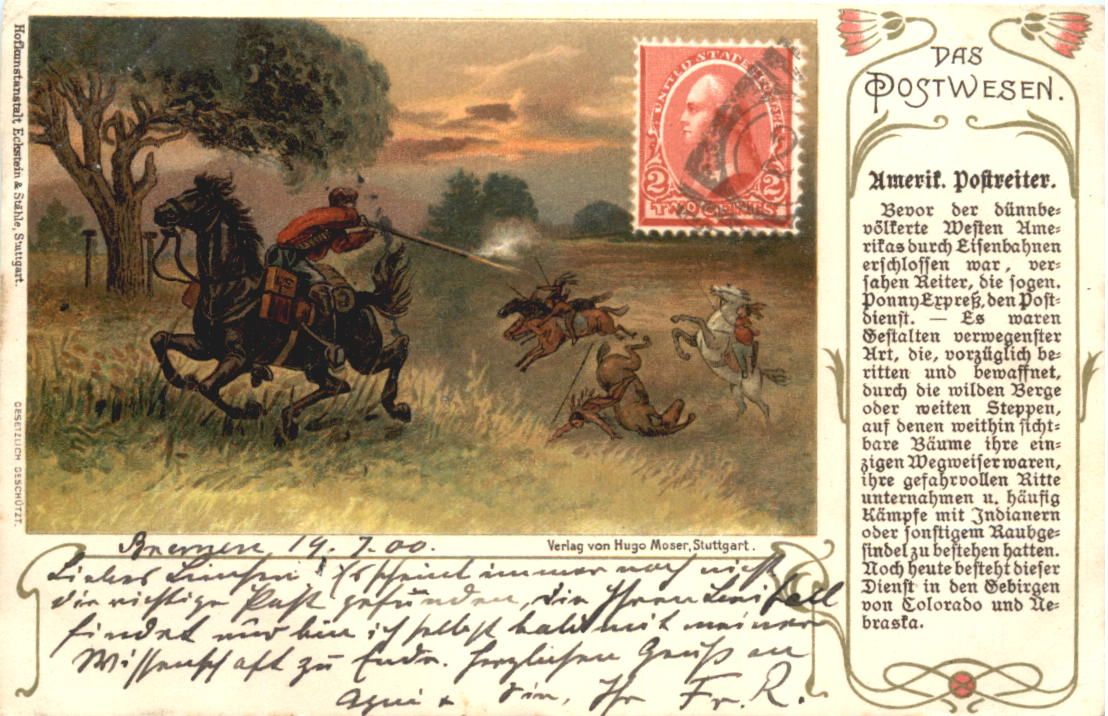 Hofkunstanstalt Eckstein & Stähle, Stuttgart.
GESETZLICH GESCHÜTZT.
UNITED STATES
2 2
TWO CENTS
DAS
POSTWESEN.
Amerik. Postreiter.
Bevor der dünnbe-
völkerte Westen Ame-
rikas durch Eisenbahnen
erschlossen war, ver-
sahen Reiter, die sogen.
PonnyExpreß, den Post-
dienst. — Es waren
Gestalten verwegenster
Art, die, vorzüglich be-
ritten und bewaffnet,
durch die wilden Berge
oder weiten Steppen,
auf denen weithin sicht-
bare Bäume ihre ein-
zigen Wegweiser waren,
ihre gefahrvollen Ritte
unternahmen u. häufig
Kämpfe mit Indianern
oder sonstigem Raubge-
sindel zu bestehen hatten.
Noch heute besteht dieser
Dienst in den Gebirgen
von Colorado und Ne-
braska.
Verlag von Hugo Moser, Stuttgart.
Bremen, 19. 7. 00.
Liebes Es scheint immer noch nicht
die richtige Post gefunden, die Ihren
findet und bin ich selbst bald mit meiner
Wissenschaft zu Ende. Herzlichen Gruß an
Ihr Fr. R.